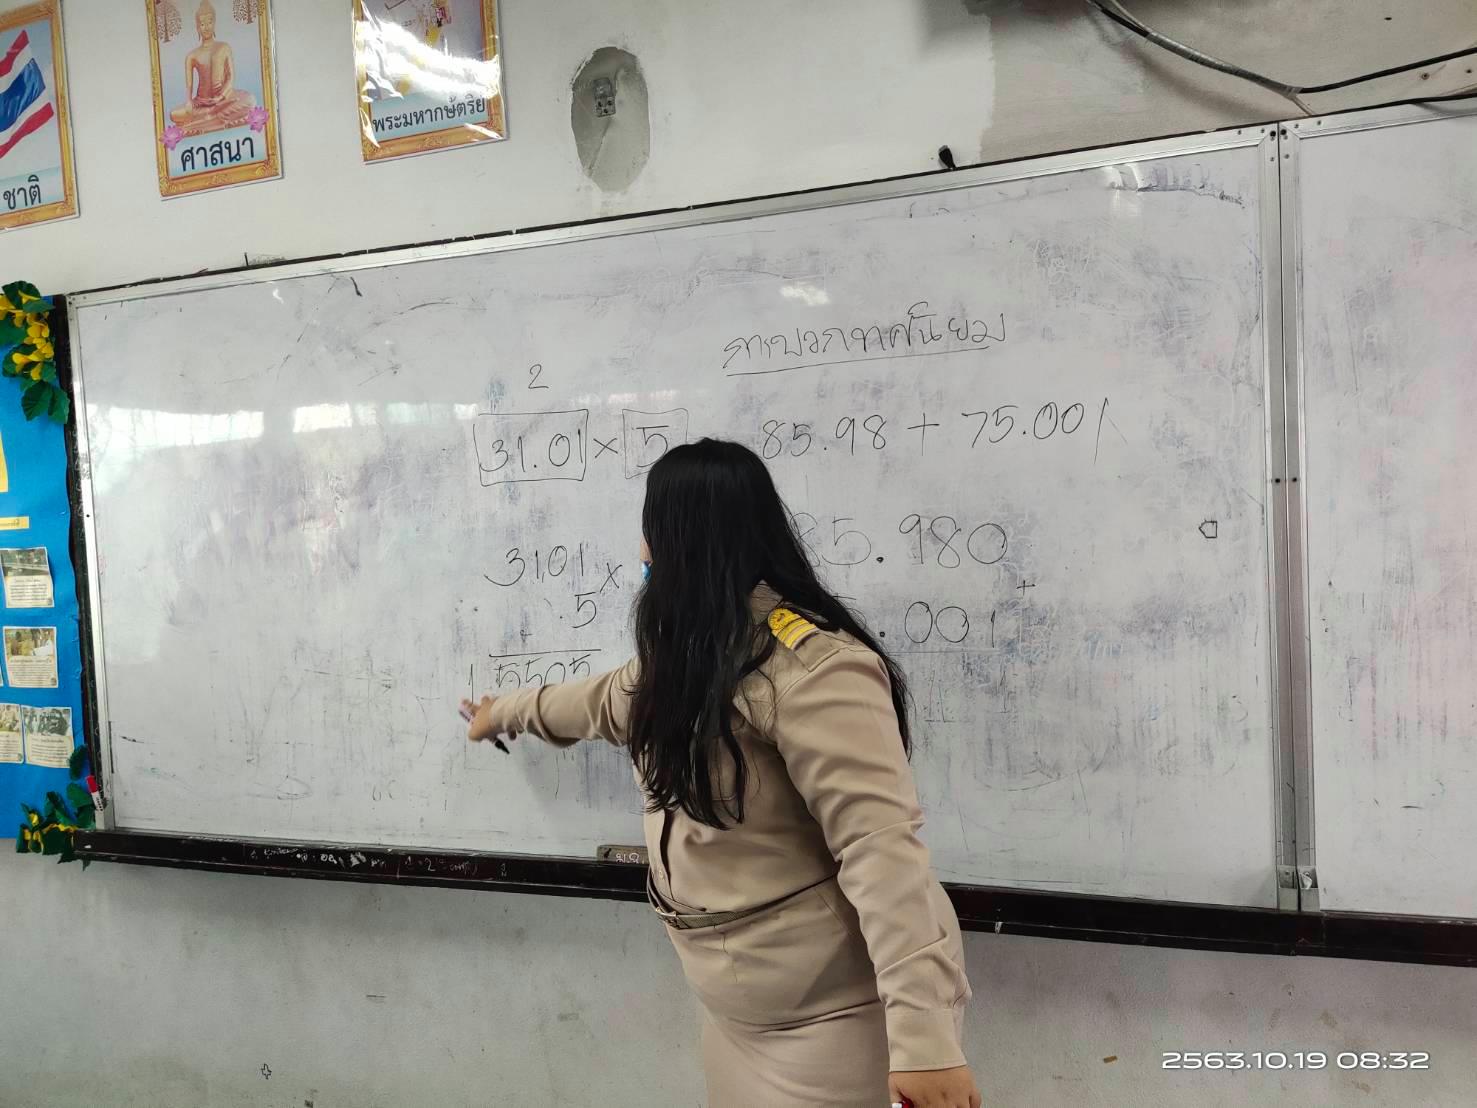 ชาติ
ศาสนา
พระมหากษัตริย์
การบวกทศนิยม
2
31.01 × 5
85.98 + 75.001
3101 ×
5
15505
85.980 +
.001
2563.10.19 08:32